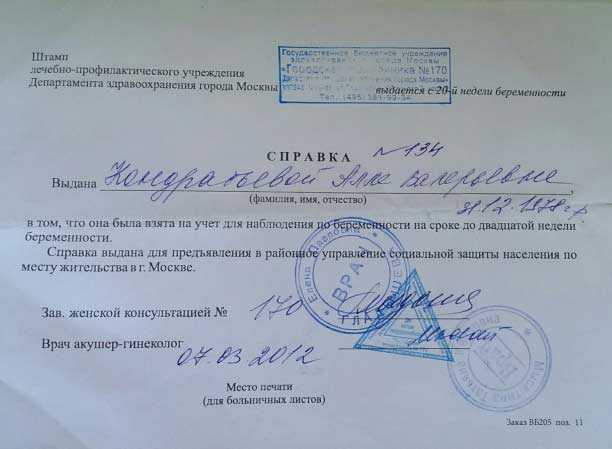 Штамп
лечебно-профилактического учреждения
Департамента здравоохранения города Москвы
Государственное бюджетное учреждение
здравоохранения города Москвы
№170
Тел. (495)
выдается с 20-й недели беременности
СПРАВКА №134
Выдана Кондратьевой Алле Валерьевне,
(фамилия, имя, отчество)
31.12.1978 г.р.
в том, что она была взята на учет для наблюдения по беременности на сроке до двадцатой недели
беременности.
Справка выдана для предъявления в районное управление социальной защиты населения по
месту жительства в г. Москве.
Елена Павловна
ВРАЧ
Зав. женской консультацией № 170
Врач акушер-гинеколог
07.03.2012
Место печати
(для больничных листов)
Заказ ВБ205 поз. 11